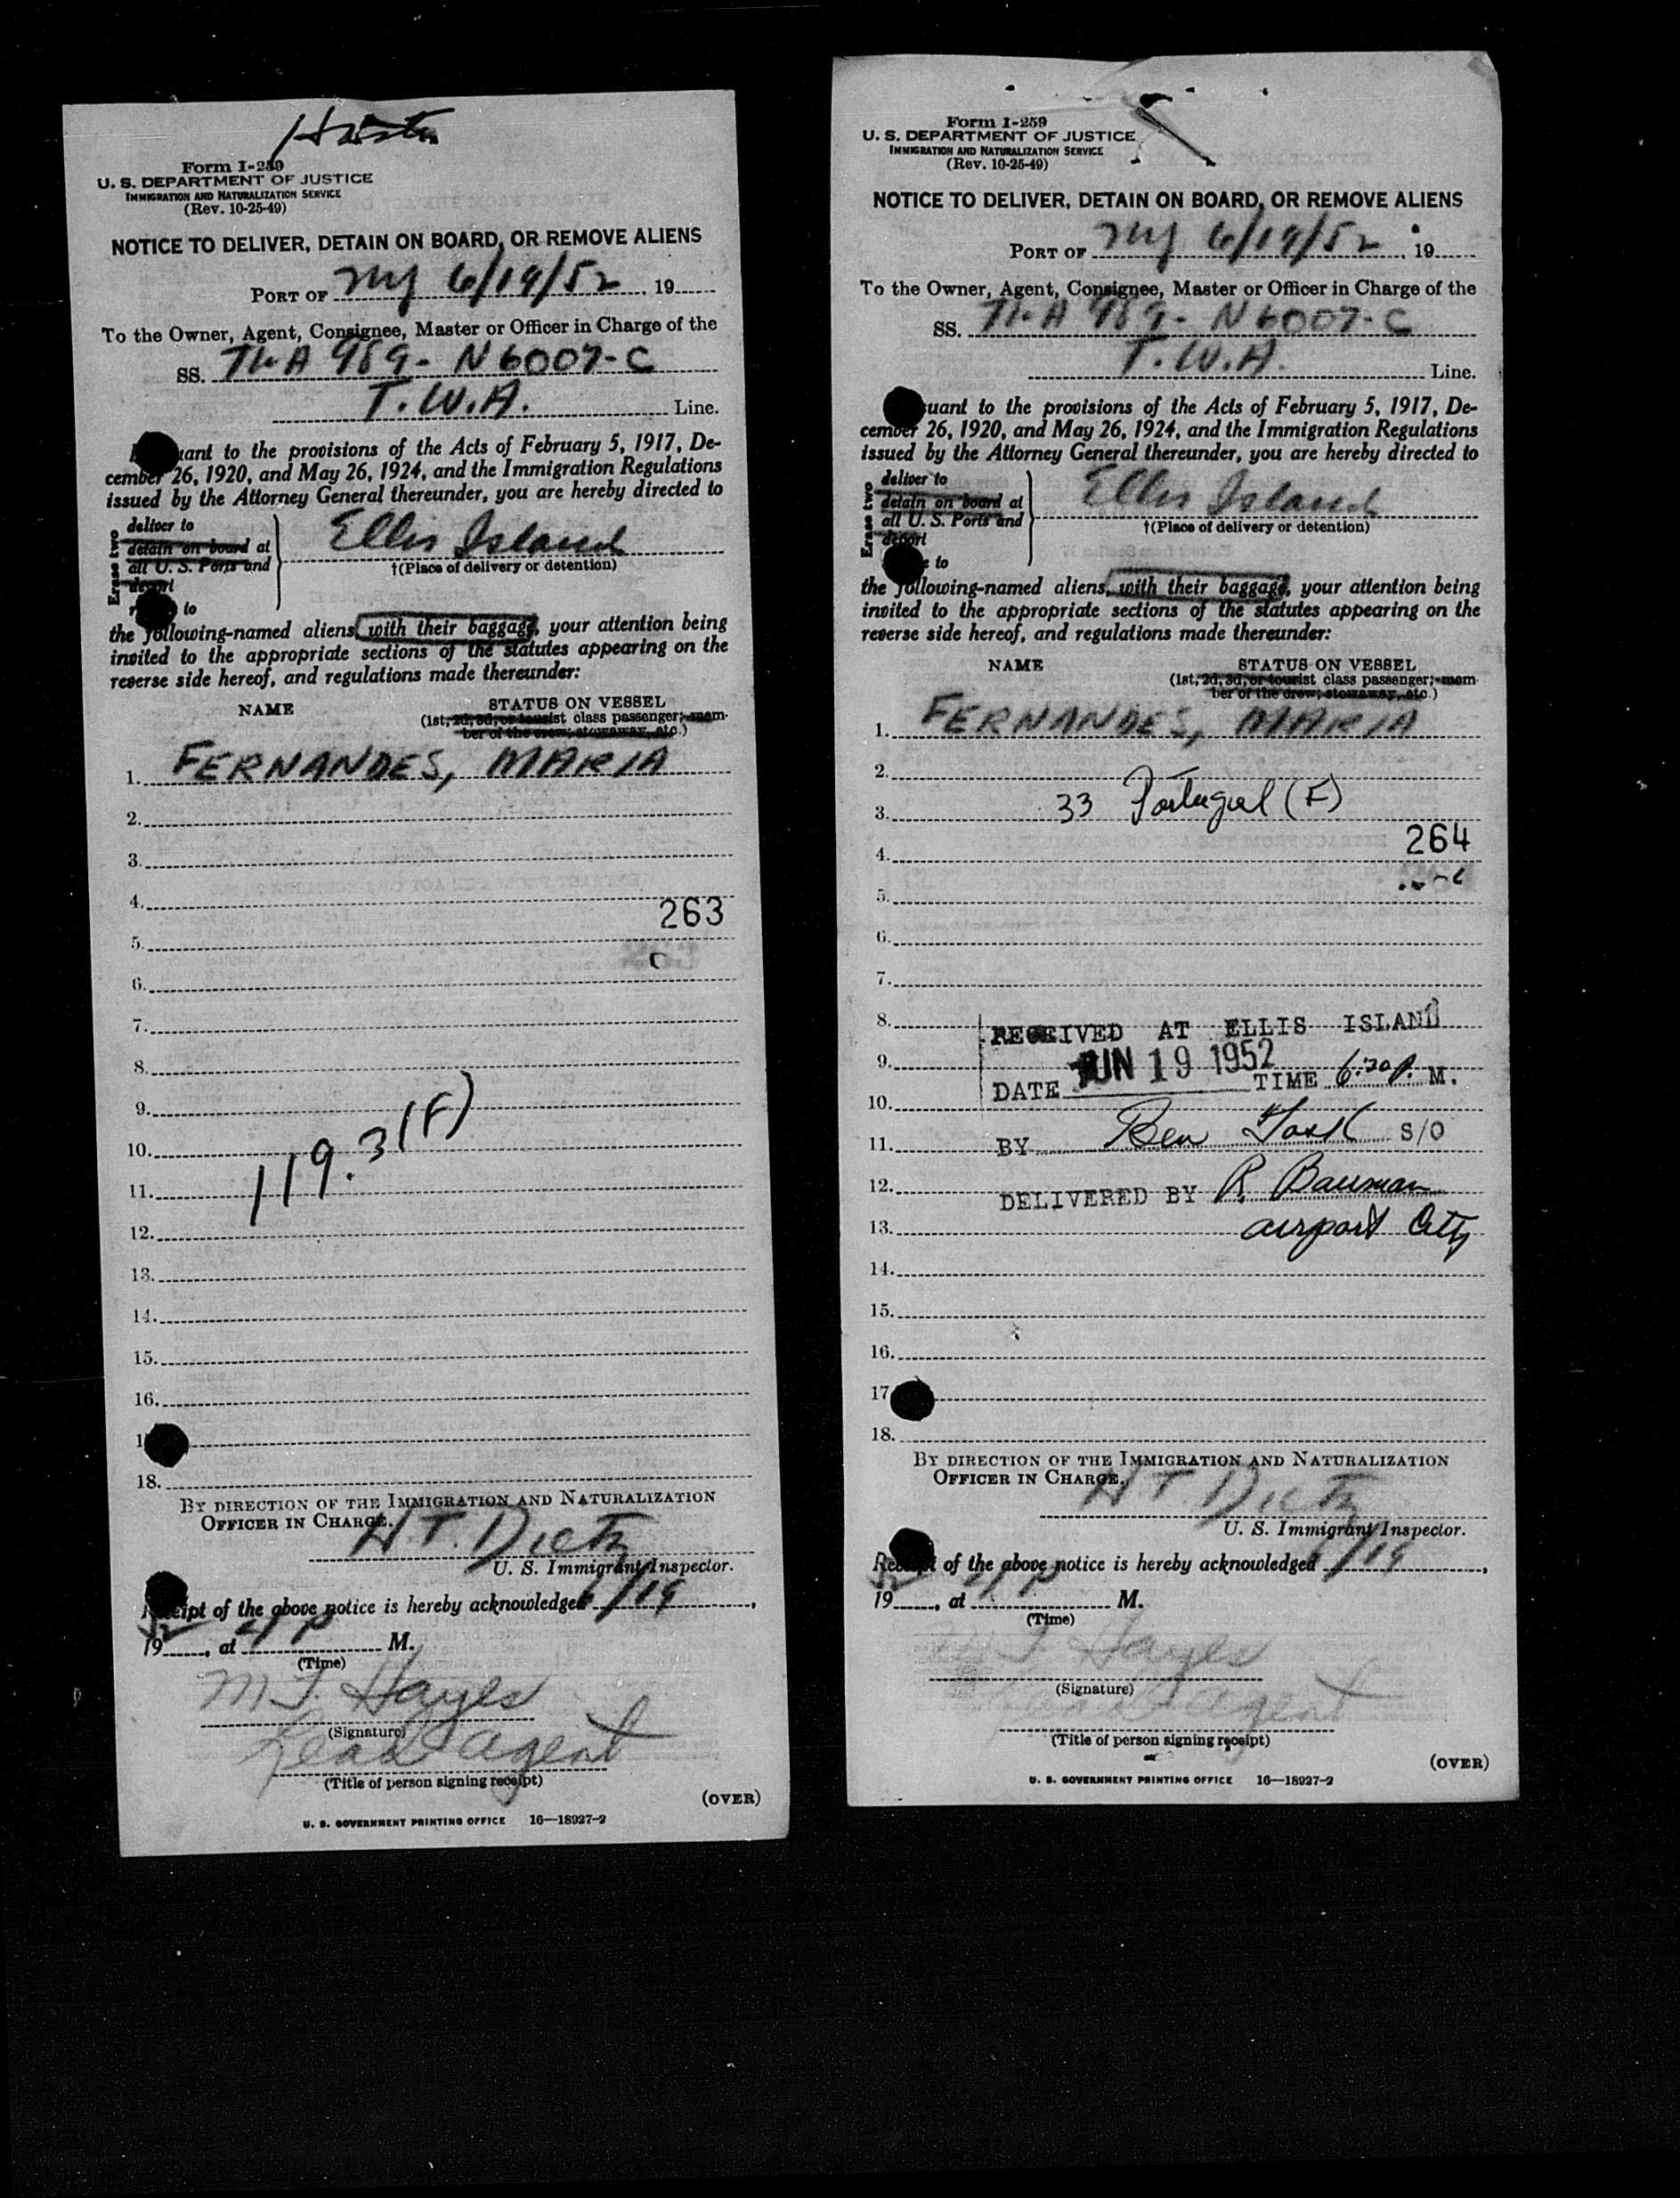 Form I-259
U. S. DEPARTMENT OF JUSTICE
IMMIGRATION AND NATURALIZATION SERVICE
(Rev. 10-25-49)
NOTICE TO DELIVER, DETAIN ON BOARD, OR REMOVE ALIENS
PORT OF NY 6/19/52, 19
To the Owner, Agent, Consignee, Master or Officer in Charge of the
SS. TWA 989- N6007-C
T.W.A. Line.
uant to the provisions of the Acts of February 5, 1917, De-
cember 26, 1920, and May 26, 1924, and the Immigration Regulations
issued by the Attorney General thereunder, you are hereby directed to
Erase two
deliver to
detain on board at
all U. S. Ports and
deport
to
Ellis Island
†(Place of delivery or detention)
the following-named aliens, with their baggage, your attention being
invited to the appropriate sections of the statutes appearing on the
reverse side hereof, and regulations made thereunder:
NAME STATUS ON VESSEL
(1st, 2d, 3d, or tourist class passenger; mem-
ber of the crew; stowaway, etc.)
1. FERNANDES, MARIA
2.
3.
4.
263
5.
6.
7.
8.
9.
10.
119.3 (F)
11.
12.
13.
14.
15.
16.
18.
BY DIRECTION OF THE IMMIGRATION AND NATURALIZATION
OFFICER IN CHARGE.
H.T. Dietz
U. S. Immigrant Inspector.
Receipt of the above notice is hereby acknowledged 6/19,
1952, at 4 P M.
(Time)
M J. Hayes
(Signature)
Lead agent
(Title of person signing receipt)
(OVER)
U. S. GOVERNMENT PRINTING OFFICE 16—18927-2
Form I-259
U. S. DEPARTMENT OF JUSTICE
IMMIGRATION AND NATURALIZATION SERVICE
(Rev. 10-25-49)
NOTICE TO DELIVER, DETAIN ON BOARD, OR REMOVE ALIENS
PORT OF NY 6/19/52, 19
To the Owner, Agent, Consignee, Master or Officer in Charge of the
SS. TWA 989- N6007-C
T.W.A. Line.
uant to the provisions of the Acts of February 5, 1917, De-
cember 26, 1920, and May 26, 1924, and the Immigration Regulations
issued by the Attorney General thereunder, you are hereby directed to
Erase two
deliver to
detain on board at
all U. S. Ports and
deport
to
Ellis Island
†(Place of delivery or detention)
the following-named aliens, with their baggage, your attention being
invited to the appropriate sections of the statutes appearing on the
reverse side hereof, and regulations made thereunder:
NAME STATUS ON VESSEL
(1st, 2d, 3d, or tourist class passenger; mem-
ber of the crew; stowaway, etc.)
1. FERNANDES, MARIA
2.
3. 33 Portugal (F)
264
4.
5.
6.
7.
8. RECEIVED AT ELLIS ISLAND
9. DATE JUN 19 1952 TIME 6:20 P. M.
10.
11. BY Ben S/O
12. DELIVERED BY R. Bauman
13. airport Atty
14.
15.
16.
17
18.
BY DIRECTION OF THE IMMIGRATION AND NATURALIZATION
OFFICER IN CHARGE.
H.T. Dietz
U. S. Immigrant Inspector.
Receipt of the above notice is hereby acknowledged 6/19,
1952, at 4 P M.
(Time)
M J. Hayes
(Signature)
Lead agent
(Title of person signing receipt)
(OVER)
U. S. GOVERNMENT PRINTING OFFICE 16—18927-2